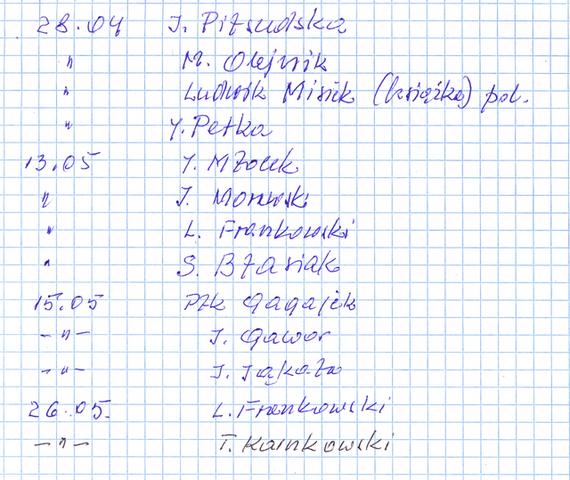 28.04 J. Piłsudska
" M. Olejnik
" Ludwik Misiek (książka) pol.
" Y. Petka
13.05 Y. Młocek
" J. Morawski
" L. Frankowski
" S. Błasiak
15.05 Płk Gagajek
-"- J. Gawor
-"- J.
26.05. L. Frankowski
-"- T. Kainkowski